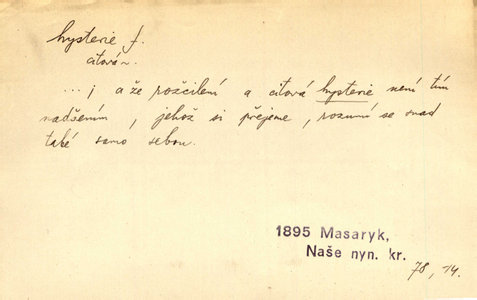 hysterie f.
citová~
...; a že rozčilení a citová hysterie není tím
nadšením, jehož si přejeme, rozumí se snad
také samo sebou.
1895 Masaryk,
Naše nyn. kr.
78, 14.